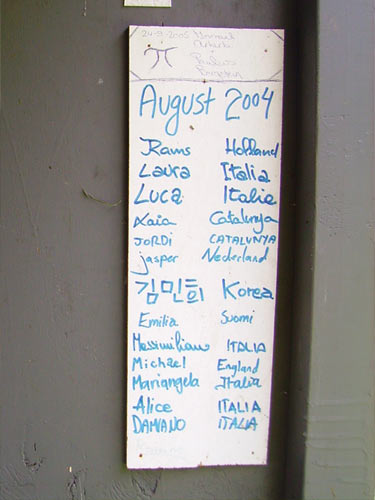 August 2004
Rams Holland
Laura Italia
Luca Italia
Laia Catalunya
JORDI CATALUNYA
jasper Nederland
김민희 Korea
Emilia Suomi
Massimiliano ITALIA
Michael England
Mariangela Italia
Alice ITALIA
DAMIANO ITALIA